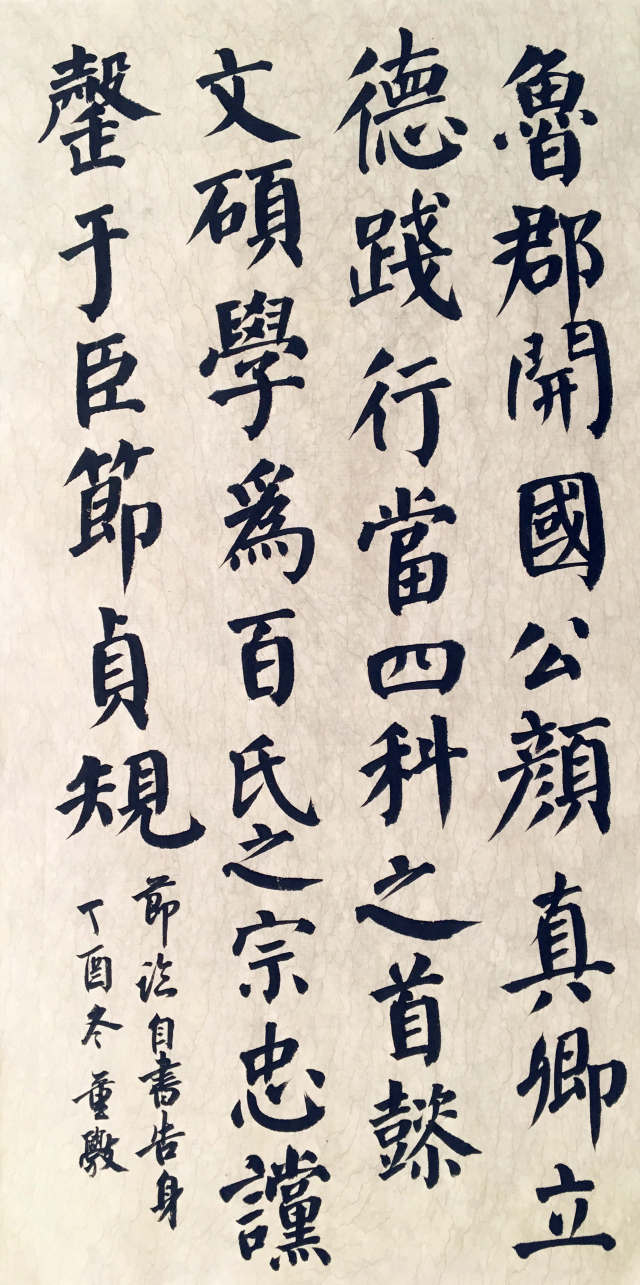 魯郡開國公顏真卿立
德踐行當四科之首懿
文碩學為百氏之宗忠讜
罄于臣節貞規
節臨自書告身
丁酉冬董